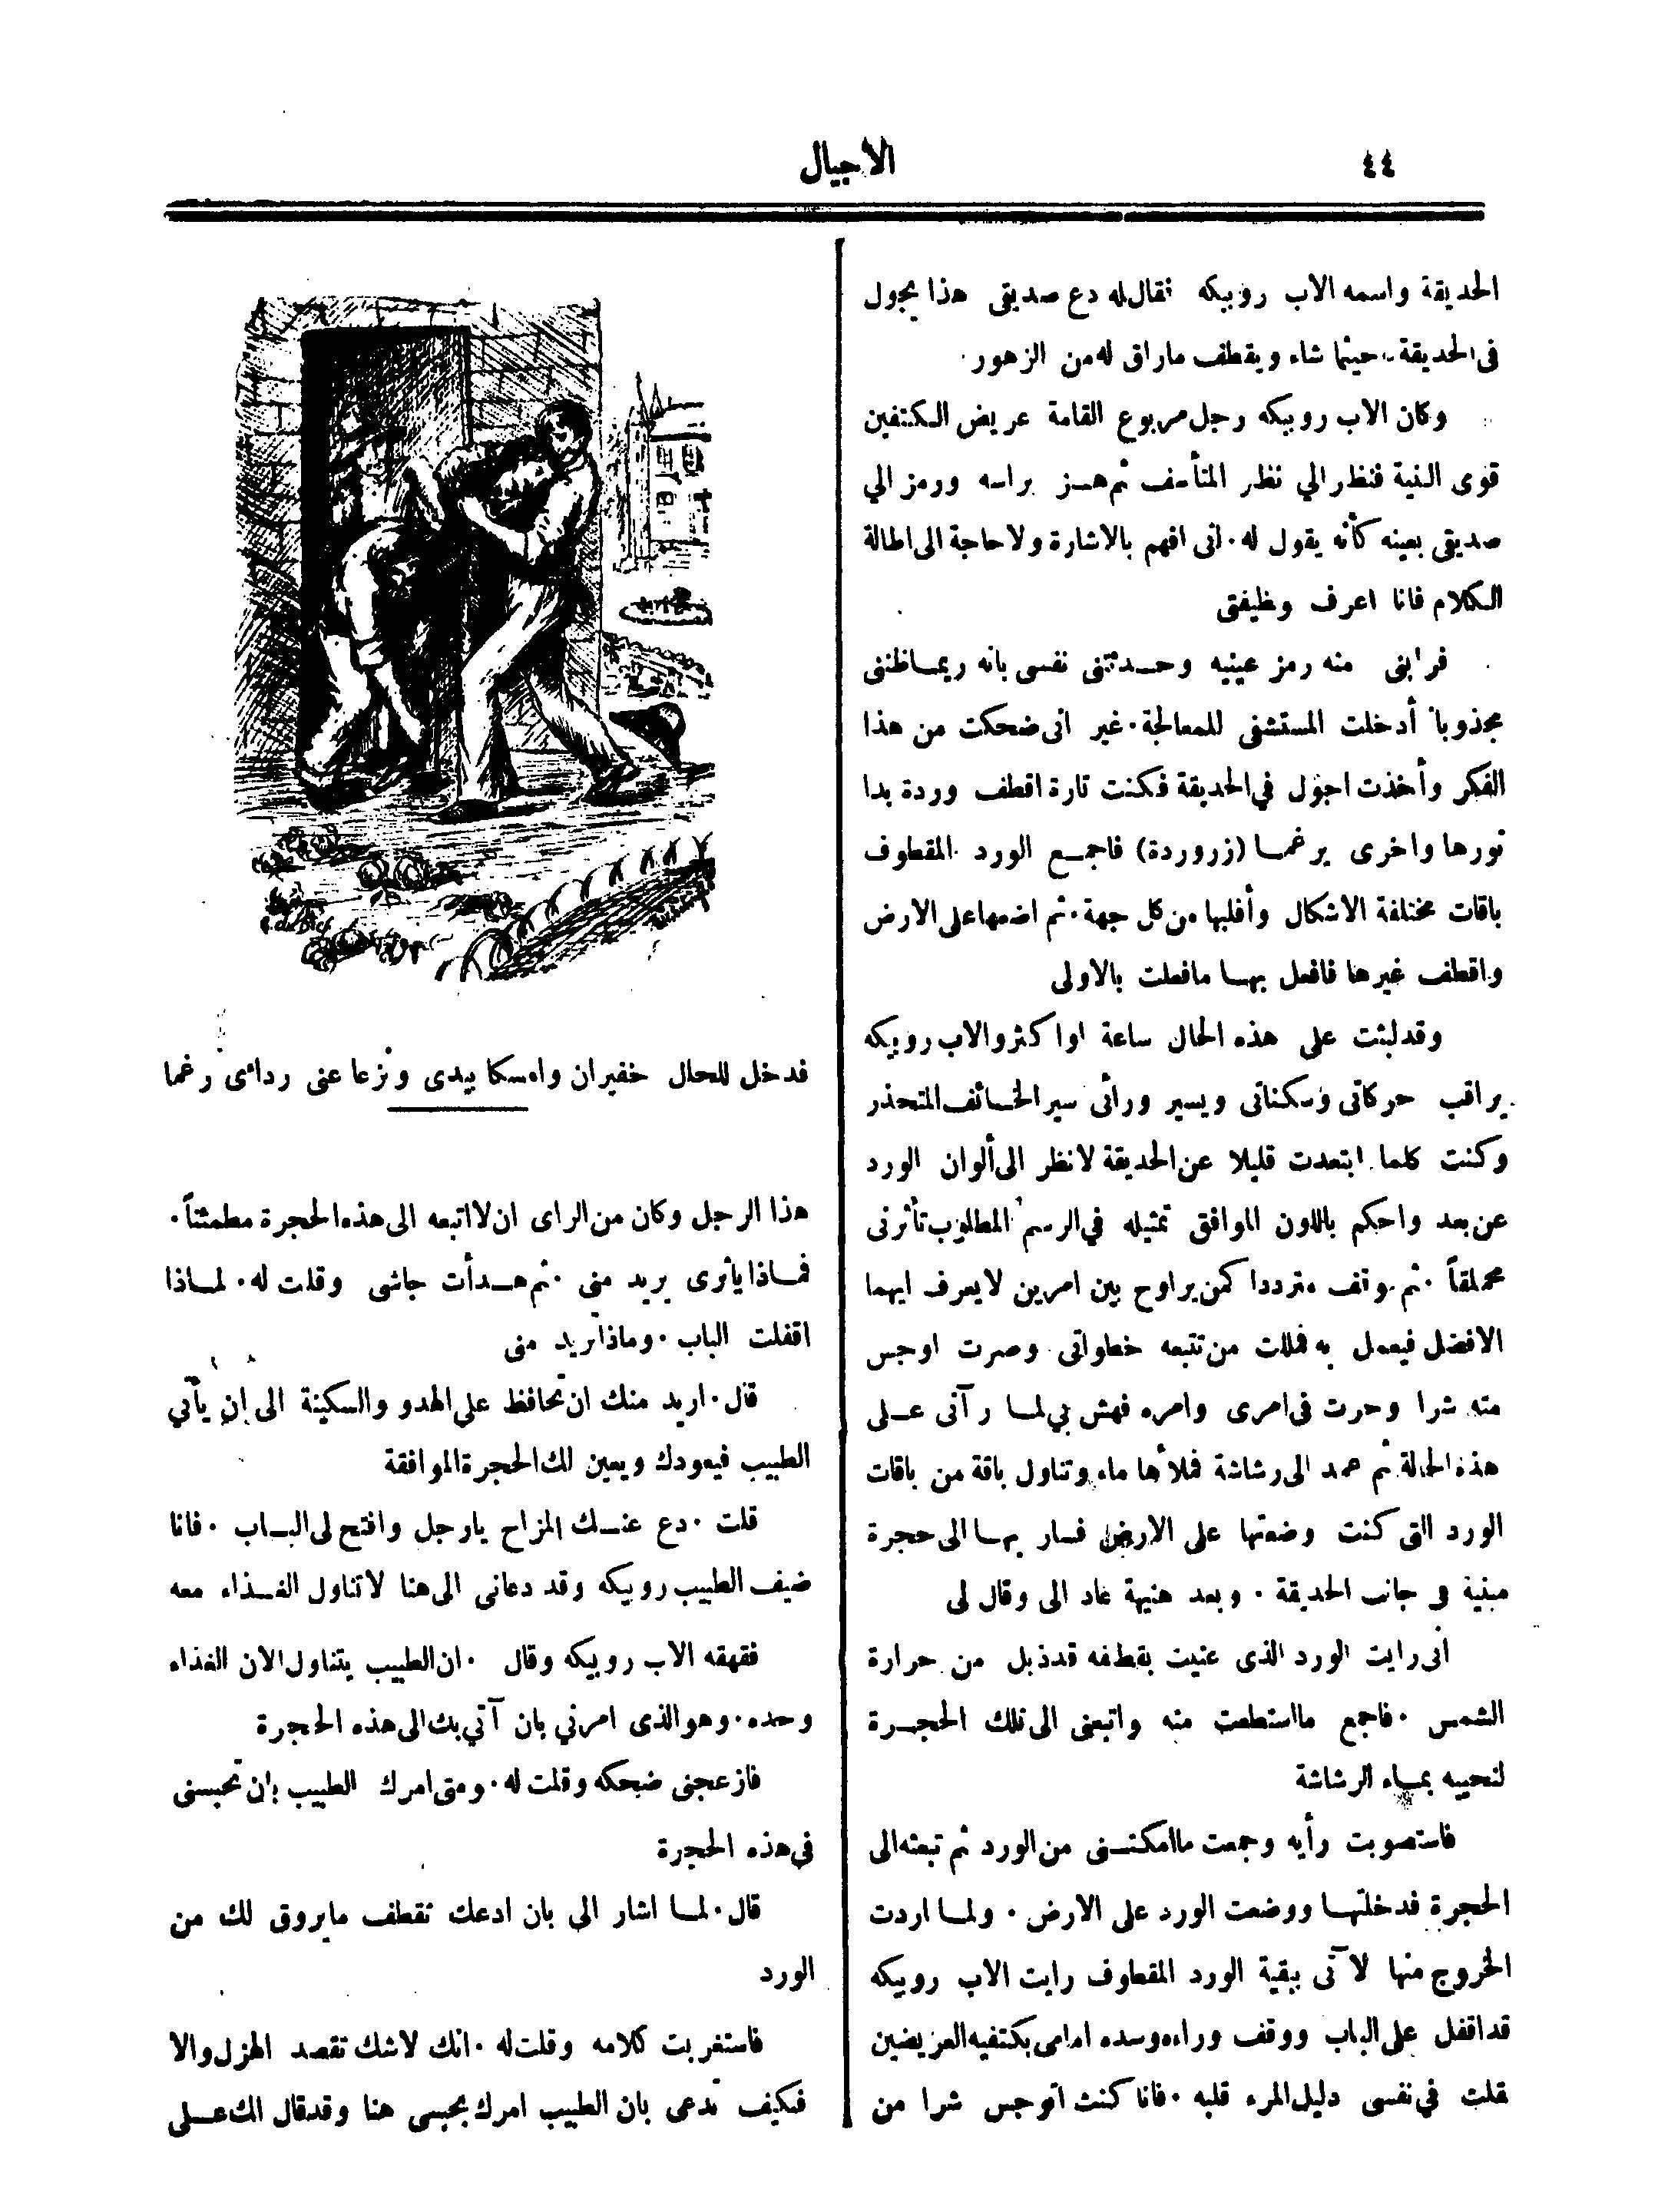 ٤٤
الاجيال
الحديقة واسمه الاب روبيكه فقال له دع صديقى هذا يجول
فى الحديقة حيثما شاء ويقطف ماراق له من الزهور
وكان الاب روبيكه رجل مربوع القامة عريض الكتفين
قوى البنية فنظر الي نظر المتأسف ثم هز براسه ورمز الي
صديقى بعينه كأنه يقول له ٠ انى افهم بالاشارة ولا حاجة الى اطالة
الكلام فانا اعرف وظيفتى
فرابنى منه رمز عينيه وحدثتنى نفسى بانه ربما ظننى
مجذوبا أدخلت المستشفى للمعالجة ٠ غير انى ضحكت من هذا
الفكر وأخذت اجول في الحديقة فكنت تارة اقطف وردة بدا
نورها واخرى برغما (زر وردة) فاجمع الورد المقطوف
باقات مختلفة الاشكال وأقلبها من كل جهة ٠ ثم اضعها على الارض
واقطف غيرها فافعل بها مافعلت بالاولى
وقد لبثت على هذه الحال ساعة او اكثر والاب روبيكه
يراقب حركاتى وسكناتى ويسير ورائى سير الخائف المتحذر
وكنت كلما ابتعدت قليلا عن الحديقة لانظر الى ألوان الورد
عن بعد واحكم باللون الموافق تمثيله في الرسم المطلوب تأثرنى
محملقاً ٠ ثم وقف مترددا كمن يراوح بين امرين لا يعرف ايهما
الافضل فيعمل به فمللت من تتبعه خطواتى وصرت اوجس
منه شرا وحرت فى امرى وامره فهش بي لما رآنى على
هذه الحالة ثم عمد الى رشاشة فملأها ماء وتناول باقة من باقات
الورد التى كنت وضعتها على الارض فسار بها الى حجرة
مبنية فى جانب الحديقة ٠ وبعد هنيهة عاد الى وقال لى
انى رايت الورد الذى عنيت بقطفه قد ذبل من حرارة
الشمس ٠ فاجمع ما استطعت منه واتبعنى الى تلك الحجرة
لنحييه بماء الرشاشة
فاستصوبت رأيه وجمعت ما امكننى من الورد ثم تبعته الى
الحجرة فدخلتها ووضعت الورد على الارض ٠ ولما اردت
الخروج منها لآتى ببقية الورد المقطوف رايت الاب روبيكه
قد اقفل على الباب ووقف وراءه وسده امامى بكتفيه العريضين
فقلت في نفسى دليل المرء قلبه ٠ فانا كنت اتوجس شرا من
فدخل للحال خفيران وامسكا بيدى ونزعا عنى ردائى رغما
هذا الرجل وكان من الراى ان لا اتبعه الى هذه الحجرة مطمئناً ٠
فماذا ياترى يريد منى ٠ ثم هدأت جاشى وقلت له ٠ لماذا
اقفلت الباب ٠ وماذا تريد منى
قال ٠ اريد منك ان تحافظ على الهدو والسكينة الى ان يأتي
الطبيب فيعودك ويعين لك الحجرة الموافقة
قلت ٠ دع عنك المزاح يارجل وافتح لى الباب ٠ فانا
ضيف الطبيب روبيكه وقد دعانى الى هنا لاتناول الغذاء معه
فقهقه الاب روبيكه وقال ٠ ان الطبيب يتناول الان الغذاء
وحده ٠ وهو الذى امرني بان آتي بك الى هذه الحجرة
فازعجنى ضحكه وقلت له ٠ ومتى امرك الطبيب بان تحبسنى
في هذه الحجرة
قال ٠ لما اشار الى بان ادعك تقطف مايروق لك من
الورد
فاستغربت كلامه وقلت له ٠ انك لاشك تقصد الهزل والا
فكيف تدعى بان الطبيب امرك بحبسى هنا وقد قال لك على